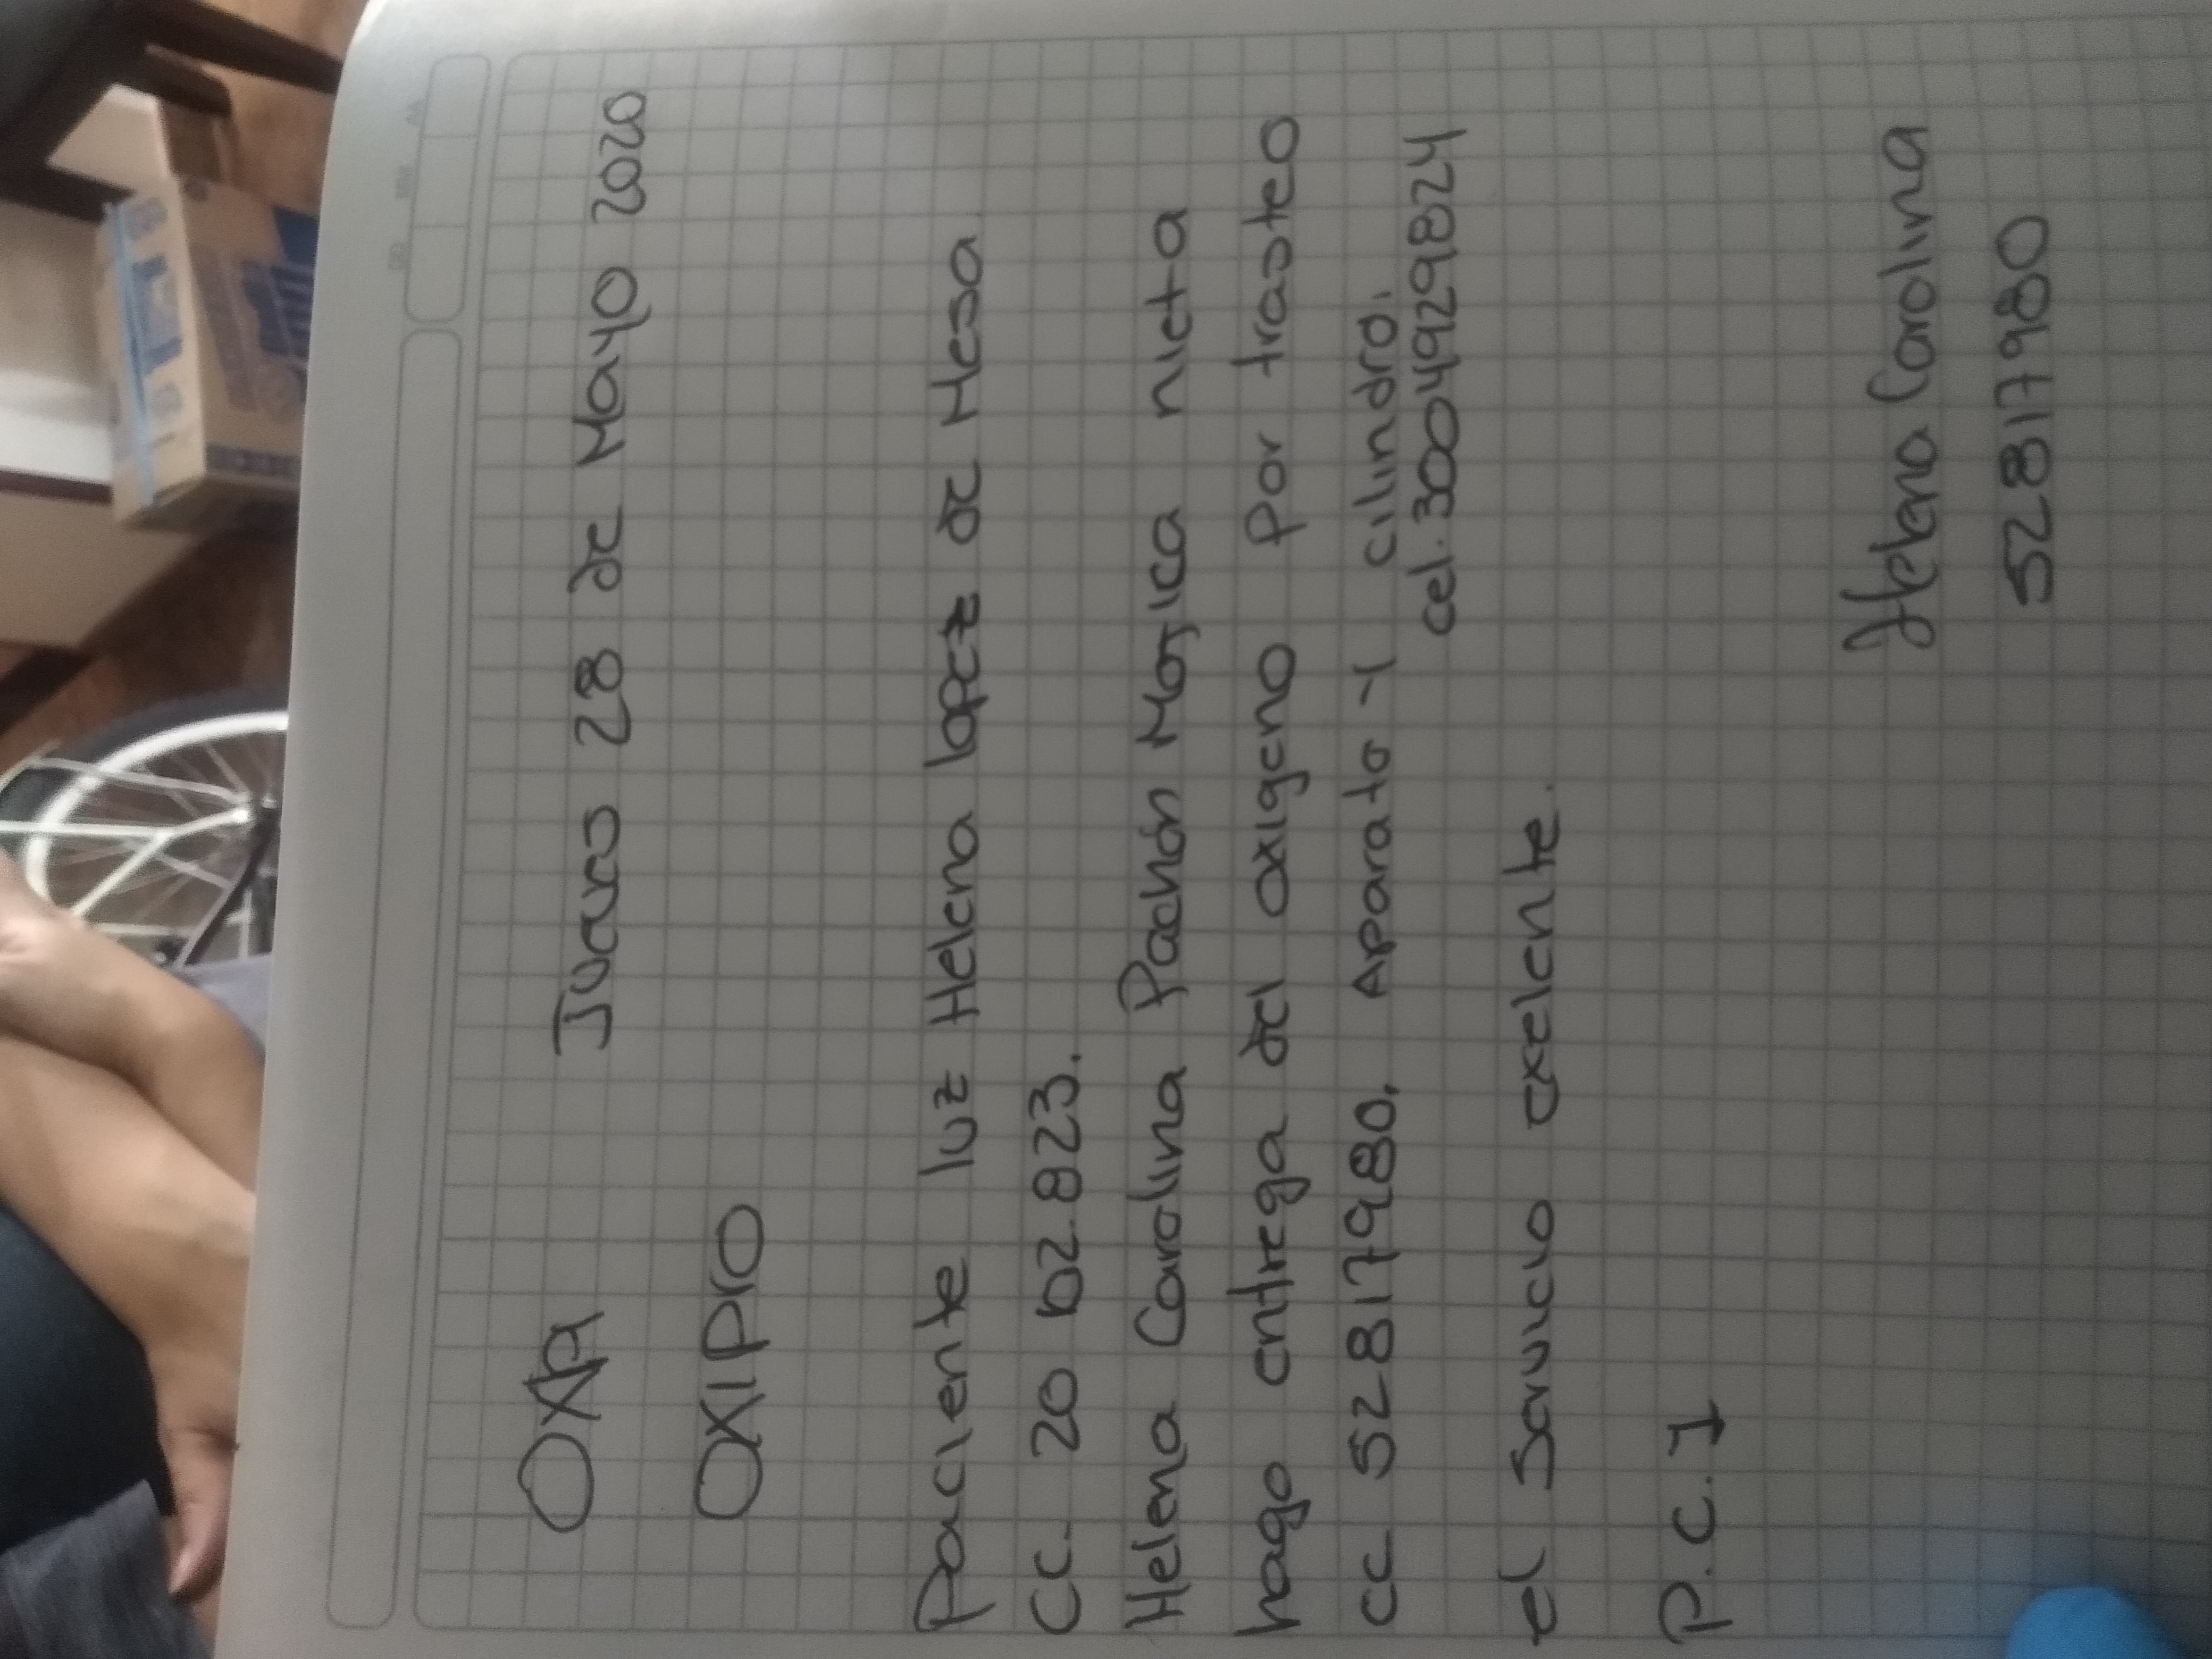 OXA Jueves 28 de Mayo 2020
OXIPrO
Paciente luz Helena lopez de Mesa
CC. 20 .823.
Helena Carolina Pachón Mojica nieta
hago entrega del oxigeno por trasteo
cc 52817980. Aparato - 1 cilindro.
cel. 3004929824
el servicio exelente.
P.C. 1
Helena Carolina
52817980